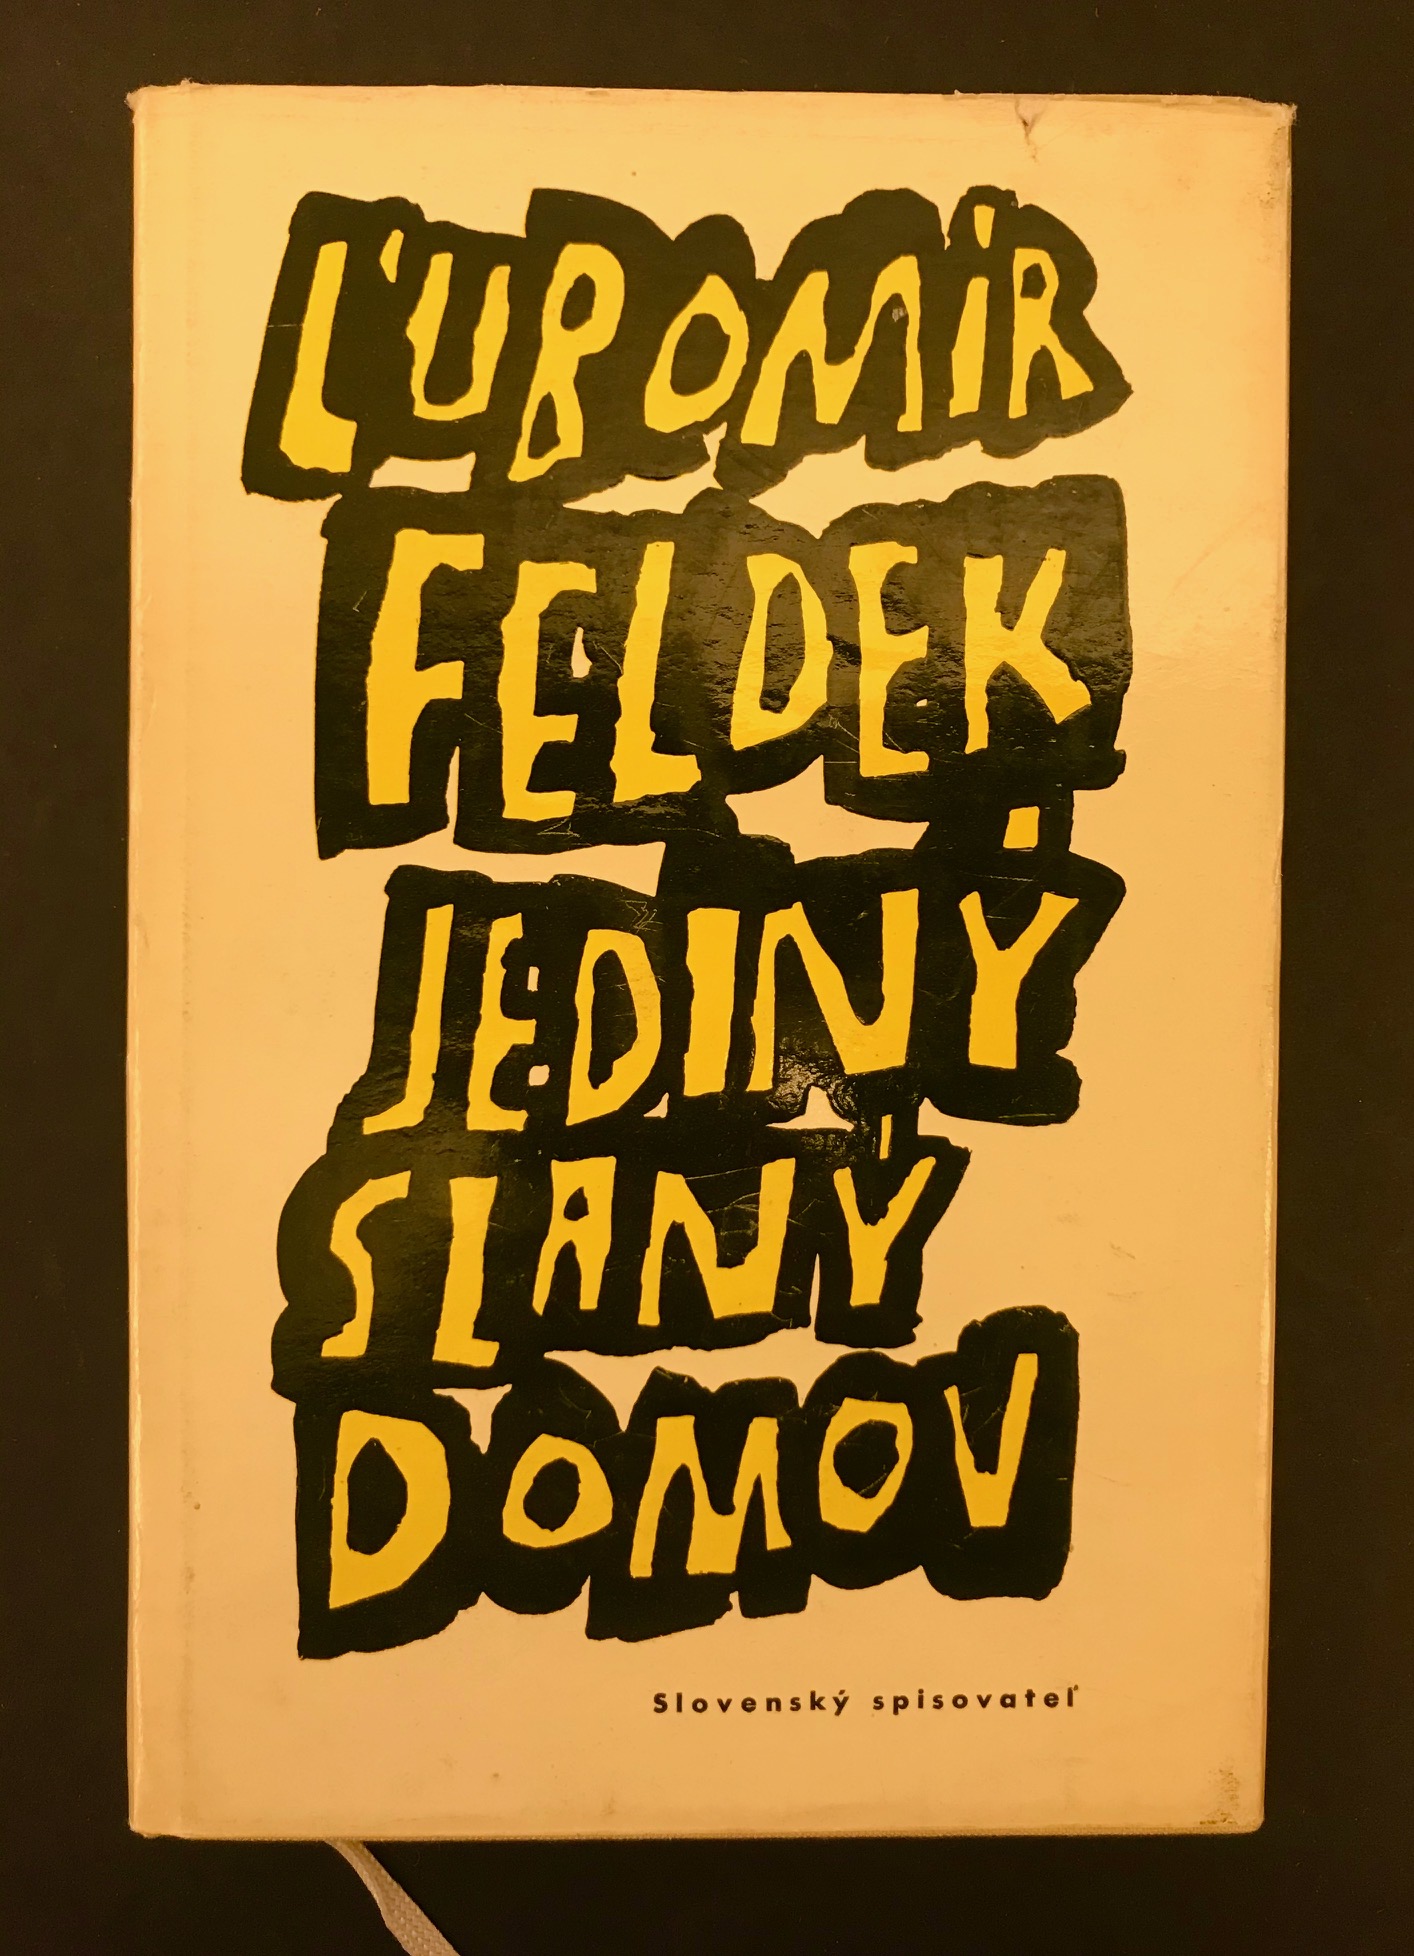 ĽUBOMÍR
FELDEK
JEDINÝ
SLANÝ
DOMOV
Slovenský spisovateľ